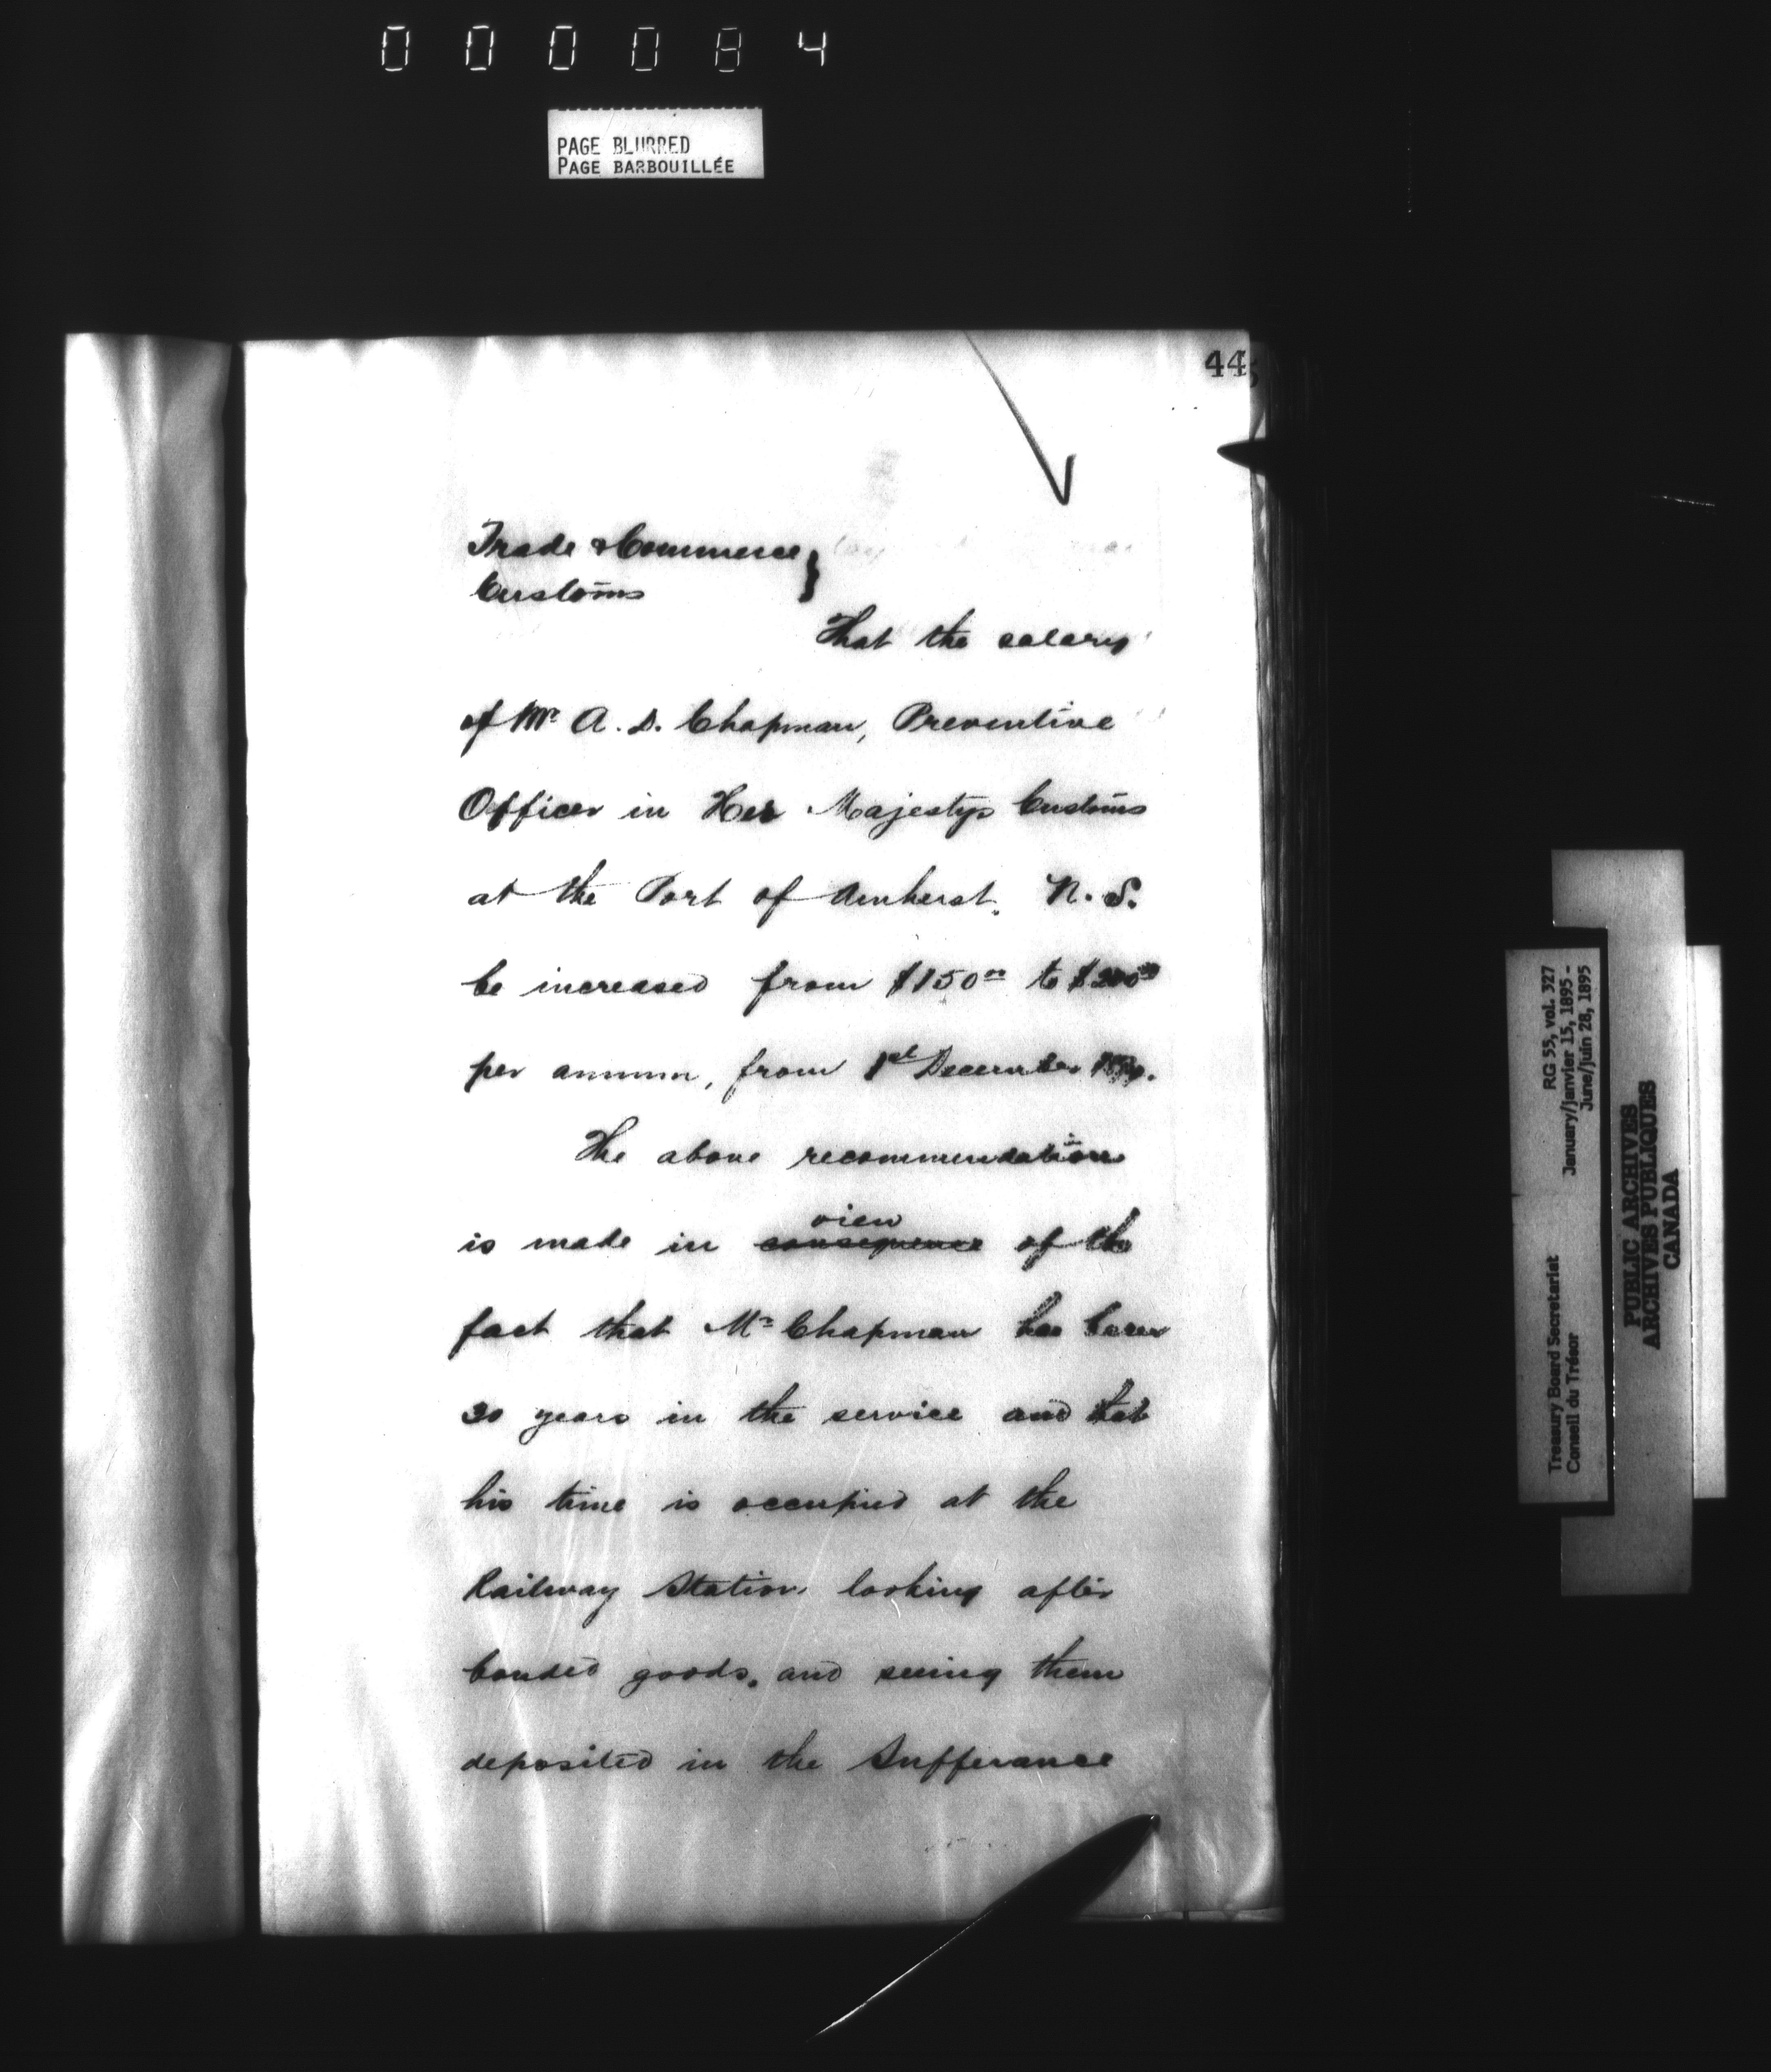 000084
PAGE BLURRED
PAGE BARBOUILLÉE
445
Trade & Commerce }
Customs
That the salary
of Mr A. D. Chapman, Preventive
Officer in Her Majestys Customs
at the Port of Amherst. N. S.
be increased from $150 00 to $200 00
per annum, from 1st December
The above recommendation
view
is made in consequence of the
fact that Mr Chapman has been
30 years in the service and that
his time is occupied at the
Railway Station looking after
bonded goods. and seeing them
deposited in the Sufferance
Treasury Board Secretariat RG 55, vol. 327
Conseil du Trésor January/janvier 15, 1895 -
June/juin 28, 1895
PUBLIC ARCHIVES
ARCHIVES PUBLIQUES
CANADA